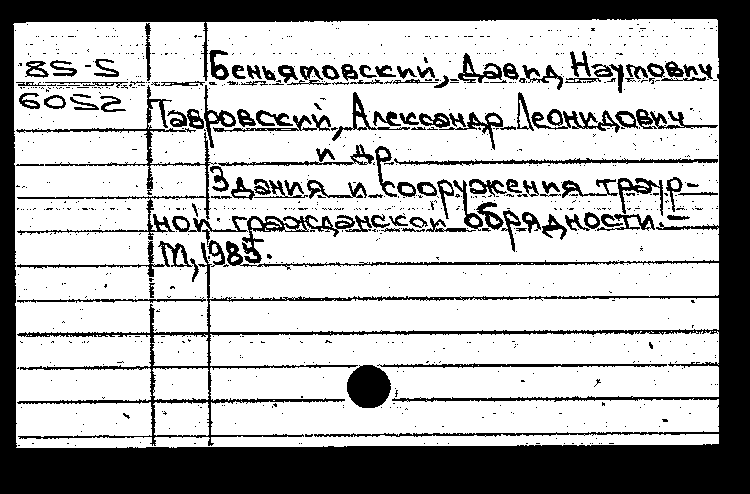 85-5
5209
Беньямовский, Давид Наумович.
Тавровский, Александр Леонидович
и др.
Здания и сооружения траур-
ной гражданской обрядности. –
М, 1985.